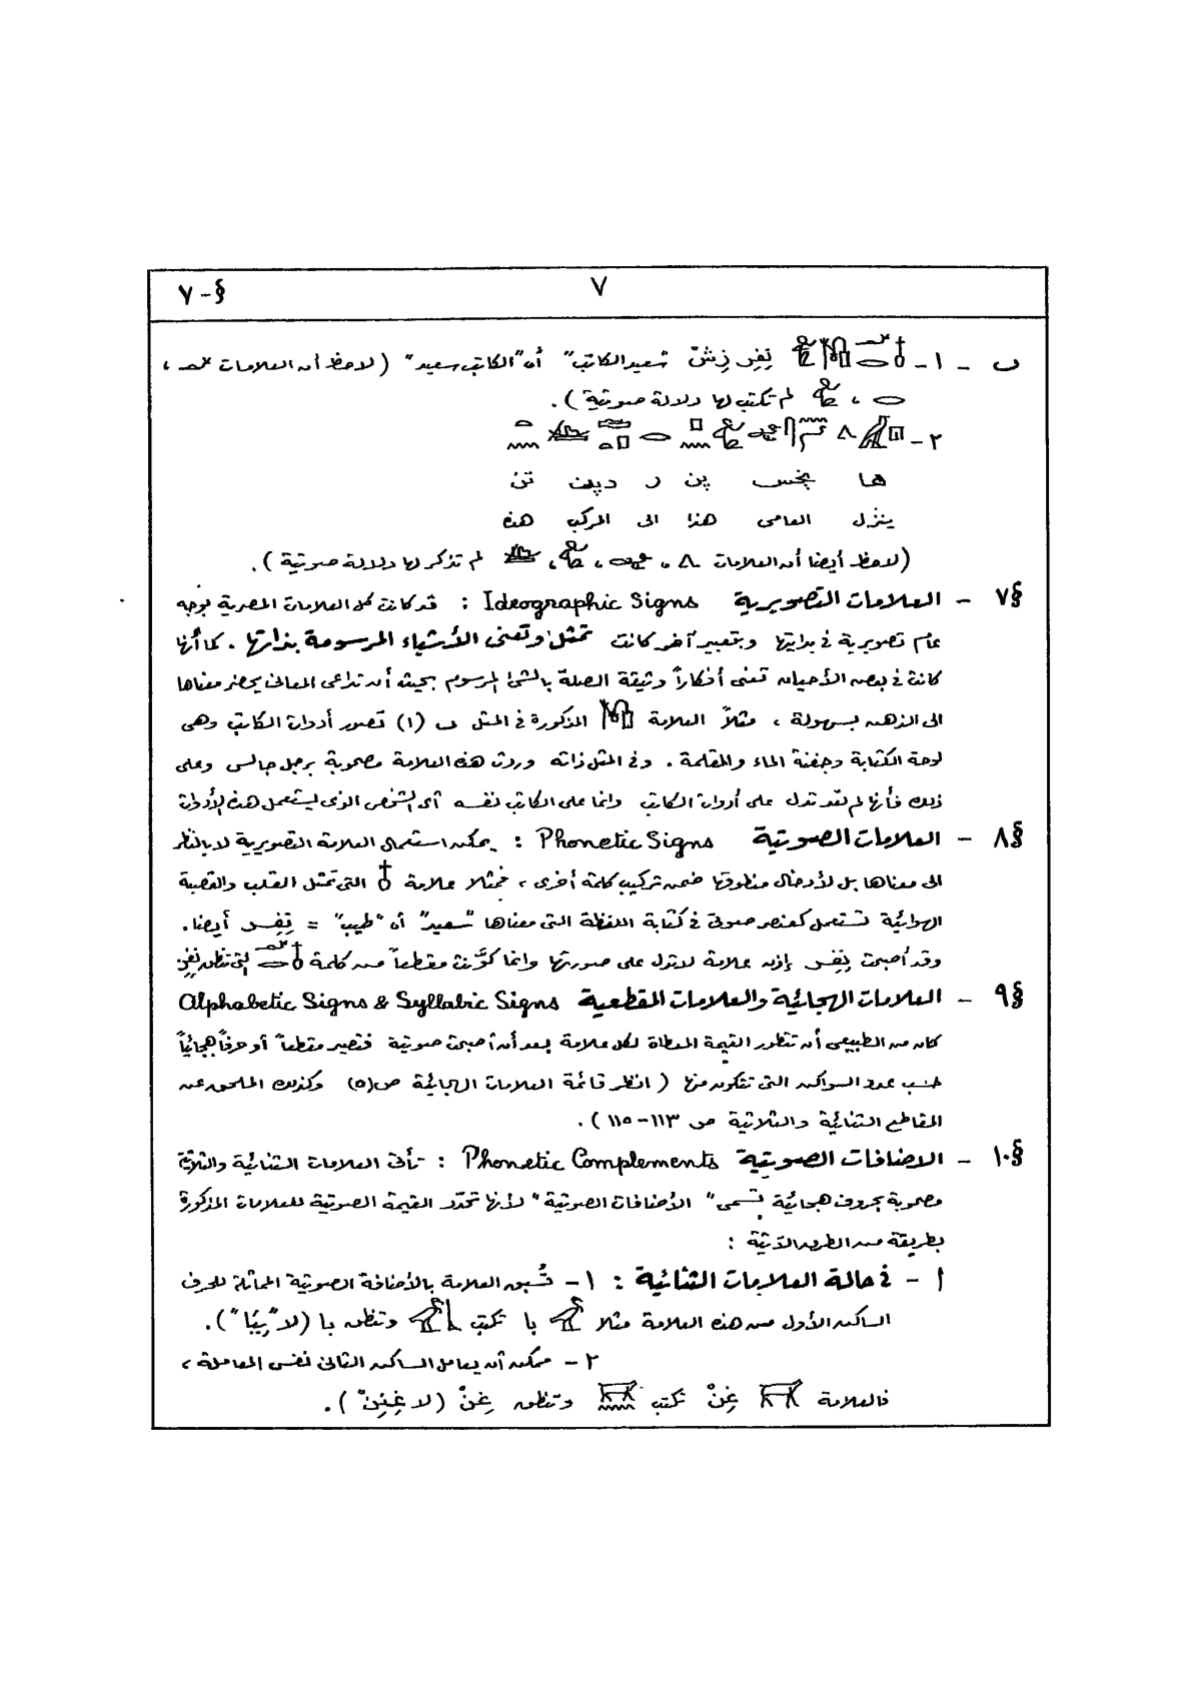 ٧
§-٧
ب - ١- 𓄤𓆑𓂋𓏞𓀀 نِفِر زِشْ "سعيد الكاتب" أى "الكاتب سعيد" (لاحظ أن العلامات 𓆑 ،
𓂋 ، 𓀀 لم تكتب لها دلالة صوتية ).
٢-
ها بخس پن ر دپت تن
ينزل العامى هذا الى المركب هذه
(لاحظ أيضا أن العلامات 𓂻 ، ، 𓀀 ، لم تذكر لها دلالة صوتية ).
§٧ - العلامات التصويرية Ideographic Signs : قد كانت كل العلامات المصرية بوجه
عام تصويرية فى بدايتها وبتعبير آخر كانت تمثل وتعنى الأشياء المرسومة بذاتها . كما أنها
كانت فى بعض الأحيان تعنى أفكاراً وثيقة الصلة بالشئ المرسوم بحيث أن تداعى المعانى يحضر معناها
الى الذهن بسهولة ، مثلاً العلامة 𓏞 المذكورة فى المثل ب (١) تصور أدوات الكاتب وهى
لوحة الكتابة وجفنة الماء والمقلمة . وفى المثل ذاته وردت هذه العلامة مصحوبة برجل جالس وعلى
ذلك فأنها لم تعد تدل على أدوات الكاتب وانما على الكاتب نفسه أى الشخص الذى يستعمل هذه الأدوات
§٨ - العلامات الصوتية Phonetic Signs : يمكن استعمال العلامة التصويرية لا بالنظر
الى معناها بل لأدخال منطوقها ضمن تركيب كلمة أخرى ، فمثلا علامة 𓄤 التى تمثل القلب والقصبة
الهوائية تستعمل كعنصر صوتى فى كتابة اللفظة التى معناها "سعيد" أى "طيب" = نِفِر أيضا .
وقد أصبحت نِفِر إذن علامة لا تدل على صورتها وانما كوَّنت مقطعاً من كلمة 𓄤𓆑𓂋 التى تنطق نِفِر
§٩ - العلامات الهجائية والعلامات المقطعية Alphabetic Signs & Syllabic Signs
كان من الطبيعى أن تتطور القيمة المعطاة لكل علامة بعد أن أصبحت صوتية فتصير مقطعاً أو حرفاً هجائياً
حسب عدد السواكن التى تتكون منها ( انظر قائمة العلامات الهجائية ص(٥) وكذلك الملحق عن
المقاطع الثنائية والثلاثية ص ١١٣-١١٥ ).
§١٠ - الاضافات الصوتية Phonetic Complements : تأتى العلامات الثنائية والثلاثية
مصحوبة بحروف هجائية تسمى "الأضافات الصوتية" لأنها تحدد القيمة الصوتية للعلامات المذكورة
بطريقة من الطرق الآتية :
أ - فى حالة العلامات الثنائية : ١- تُسبق العلامة بالأضافة الصوتية المماثلة للحرف
الساكن الأول من هذه العلامة مثلا 𓅡 با تكتب 𓃀𓅡 وتنطق با (لا "بِبَا").
٢- ممكن أن يعامل الساكن الثانى نفس المعاملة ،
فالعلامة غِنْ تكتب وتنطق غِنْ (لا غِنِنْ ).